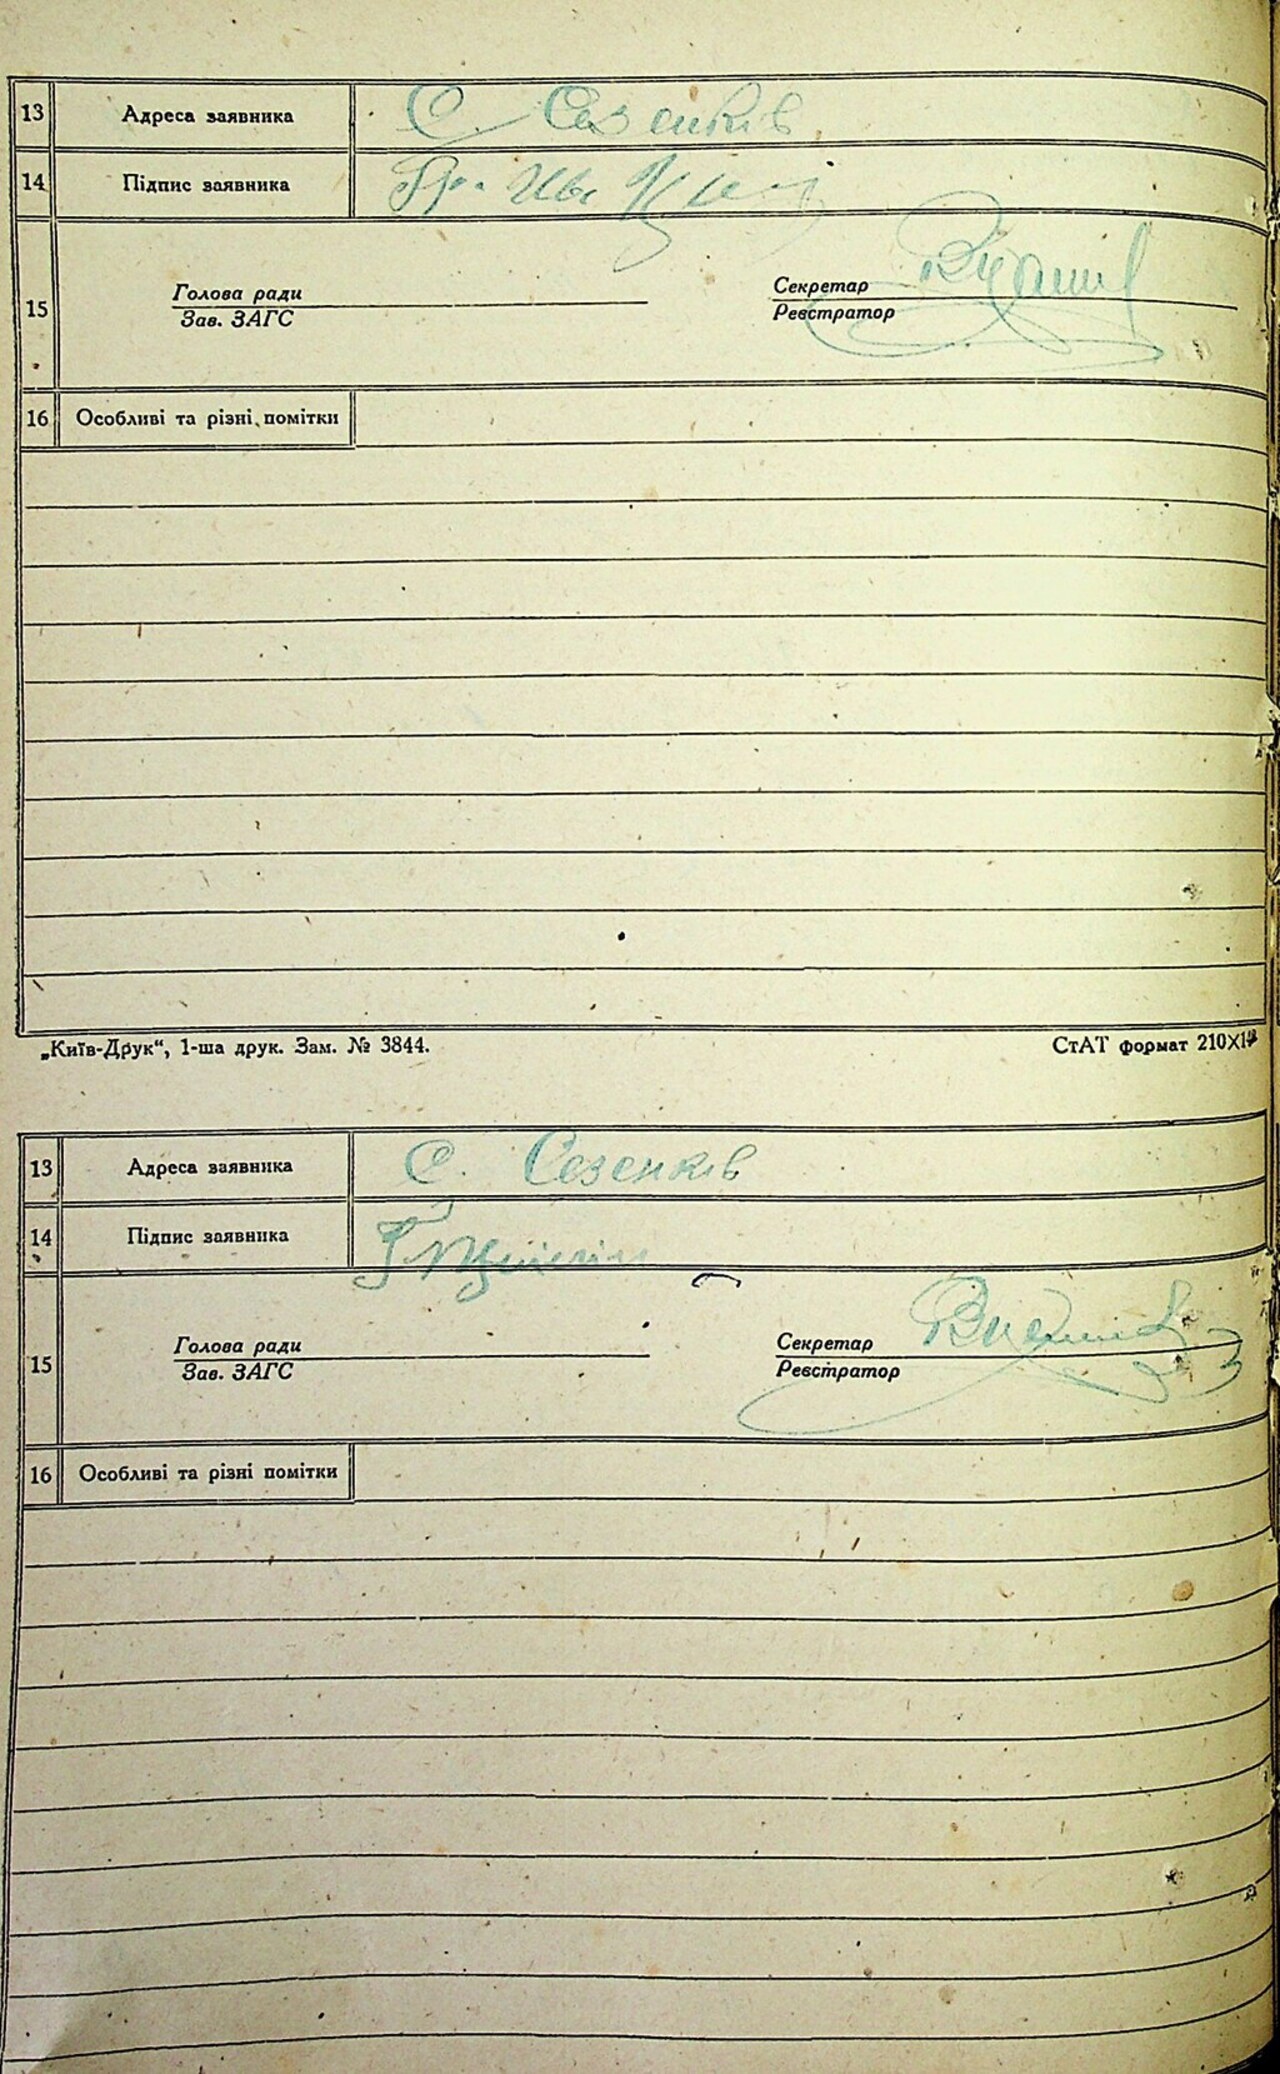 13 Адреса заявника С. Сезенків
14 Підпис заявника Гр.
15 Голова ради Секретар
Зав. ЗАГС Реєстратор
16 Особливі та різні помітки
„Київ-Друк“, 1-ша друк. Зам. № 3844. СтАТ формат 210X1
13 Адреса заявника С. Сезенків
14 Підпис заявника
15 Голова ради Секретар
Зав. ЗАГС Реєстратор
16 Особливі та різні помітки